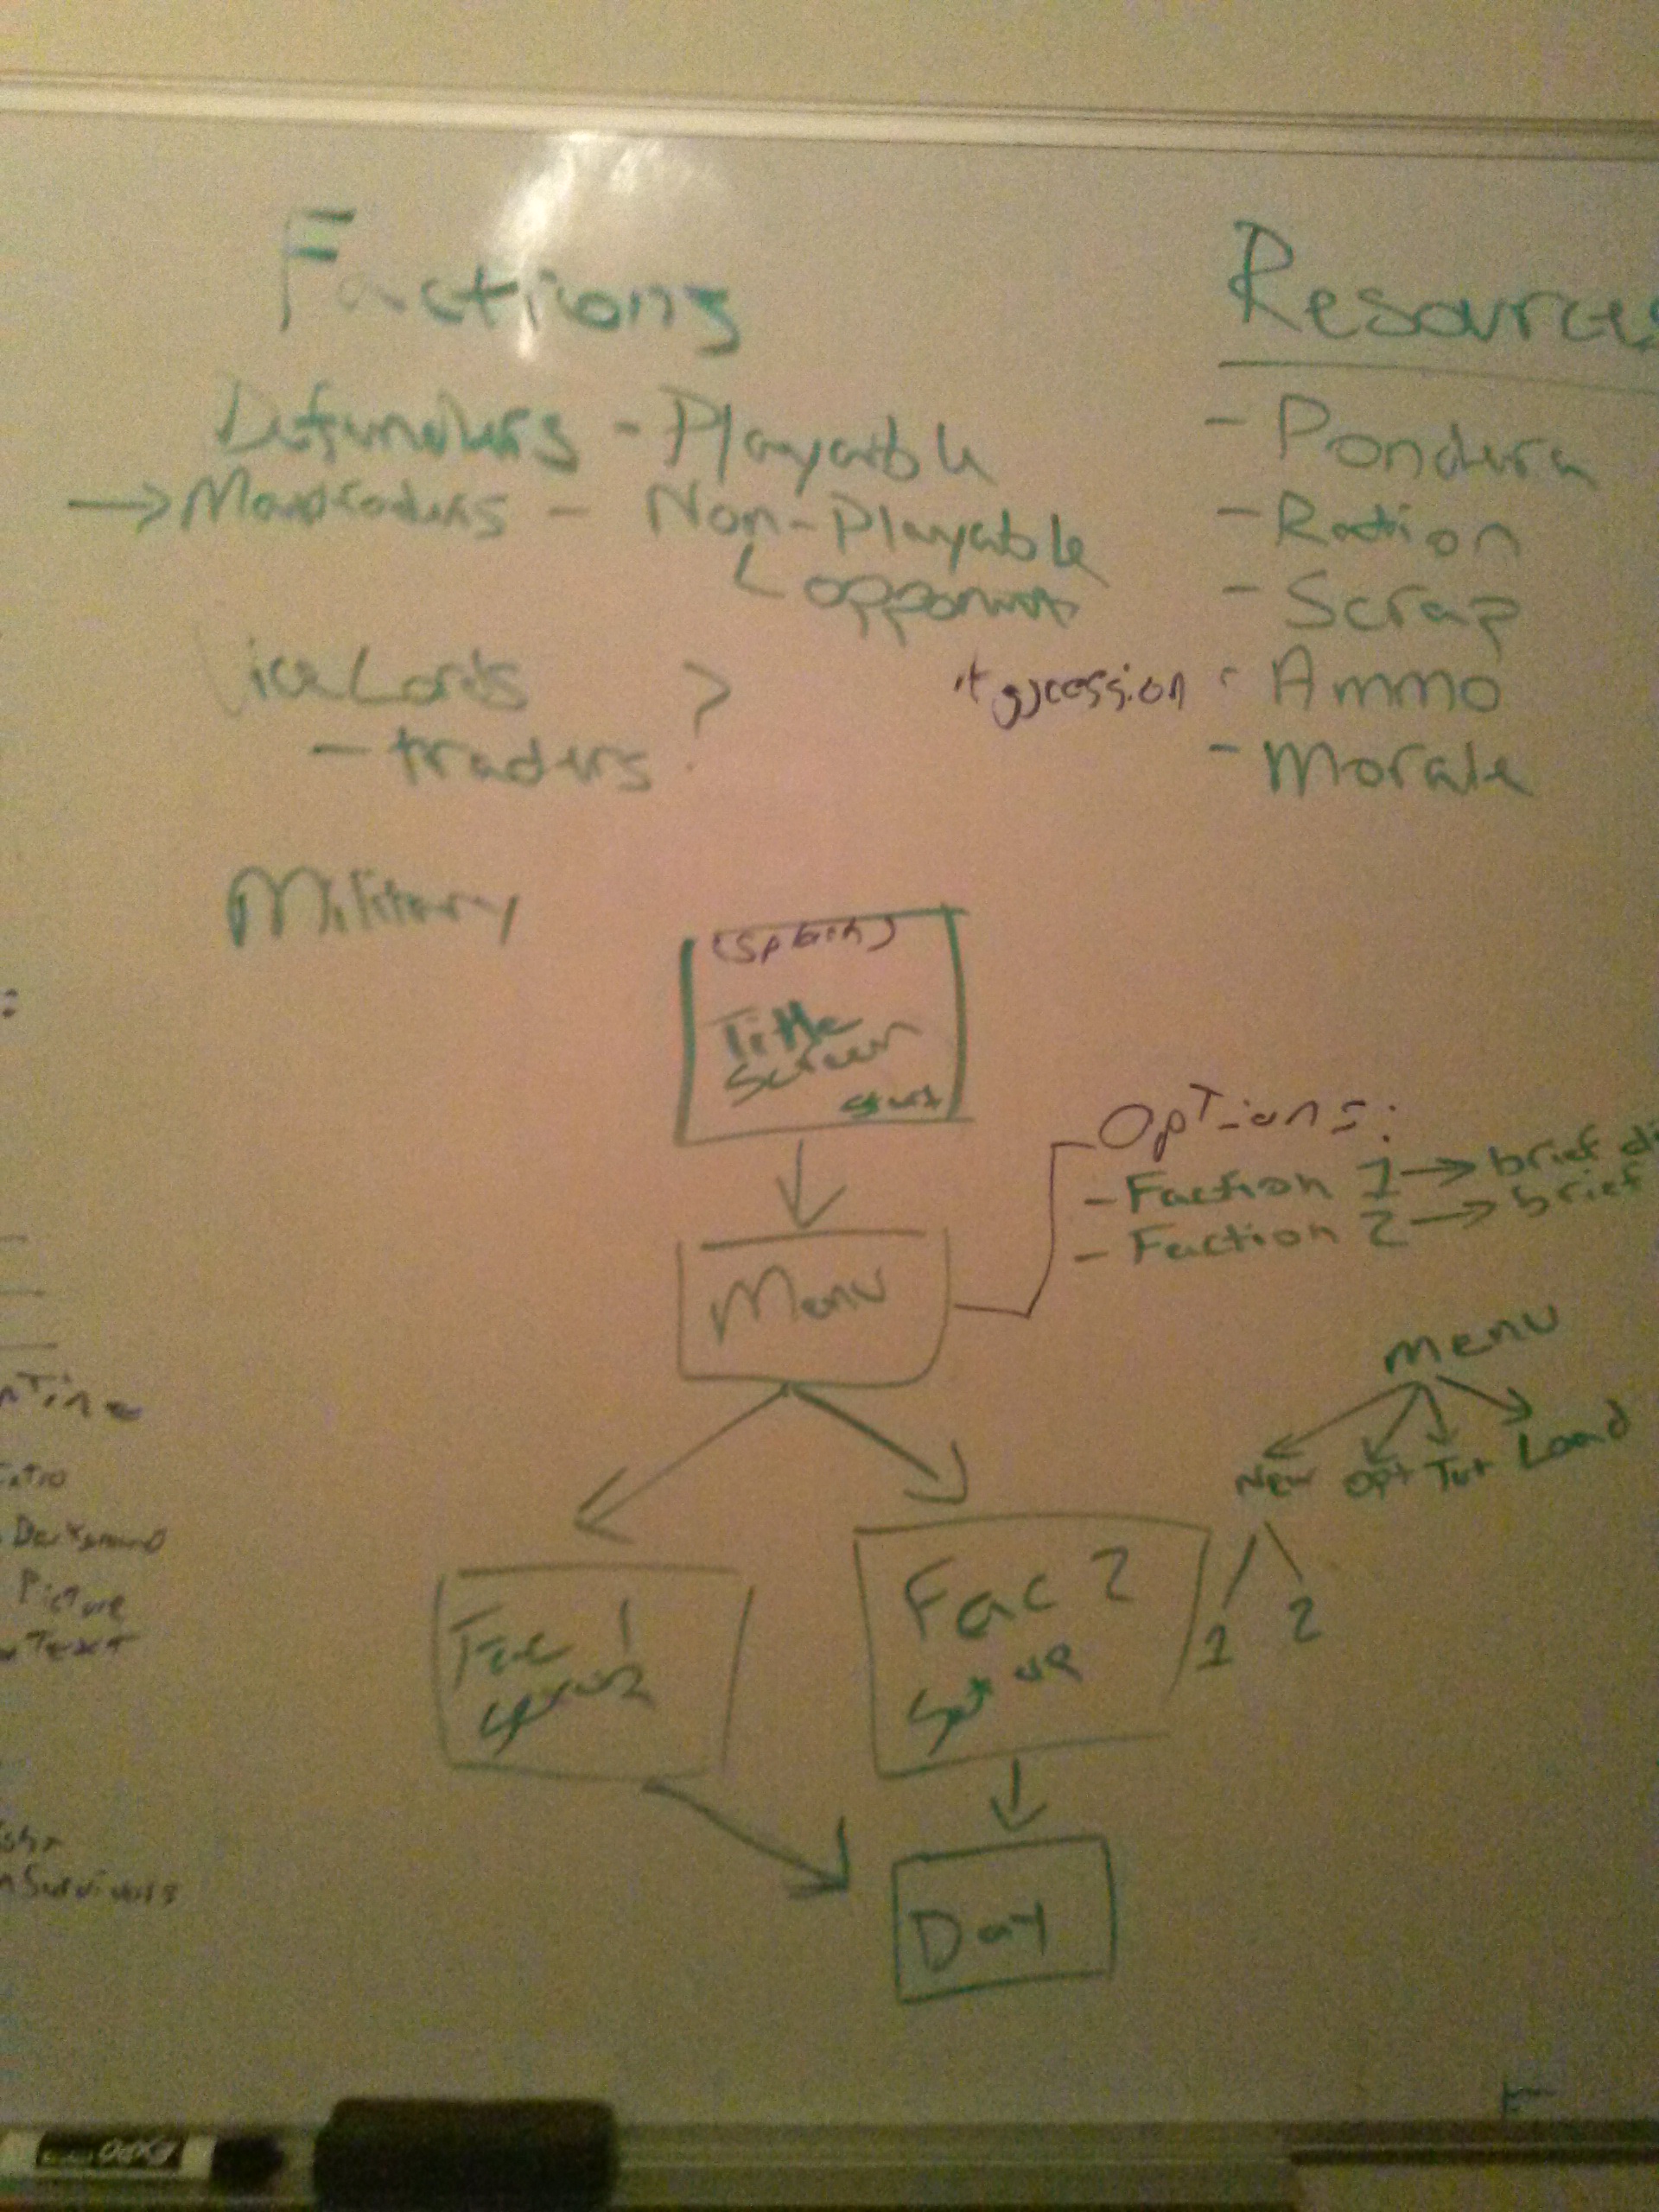 Factions
Defenders - Playable
→ Maurauders - Non-Playable
opponents
Vice Lords ?
- traders
Military
Resources
- Pondera
- Ration
- Scrap
Aggression - Ammo
- Morale
(Splash)
Title
Screen
start
Menu
Options:
- Faction 1 → brief
- Faction 2 → brief
Menu
New Opt Tut Load
1 2
Fac 1
Fac 2
Set up
Day
Picture
Text
Survivors
EXPO